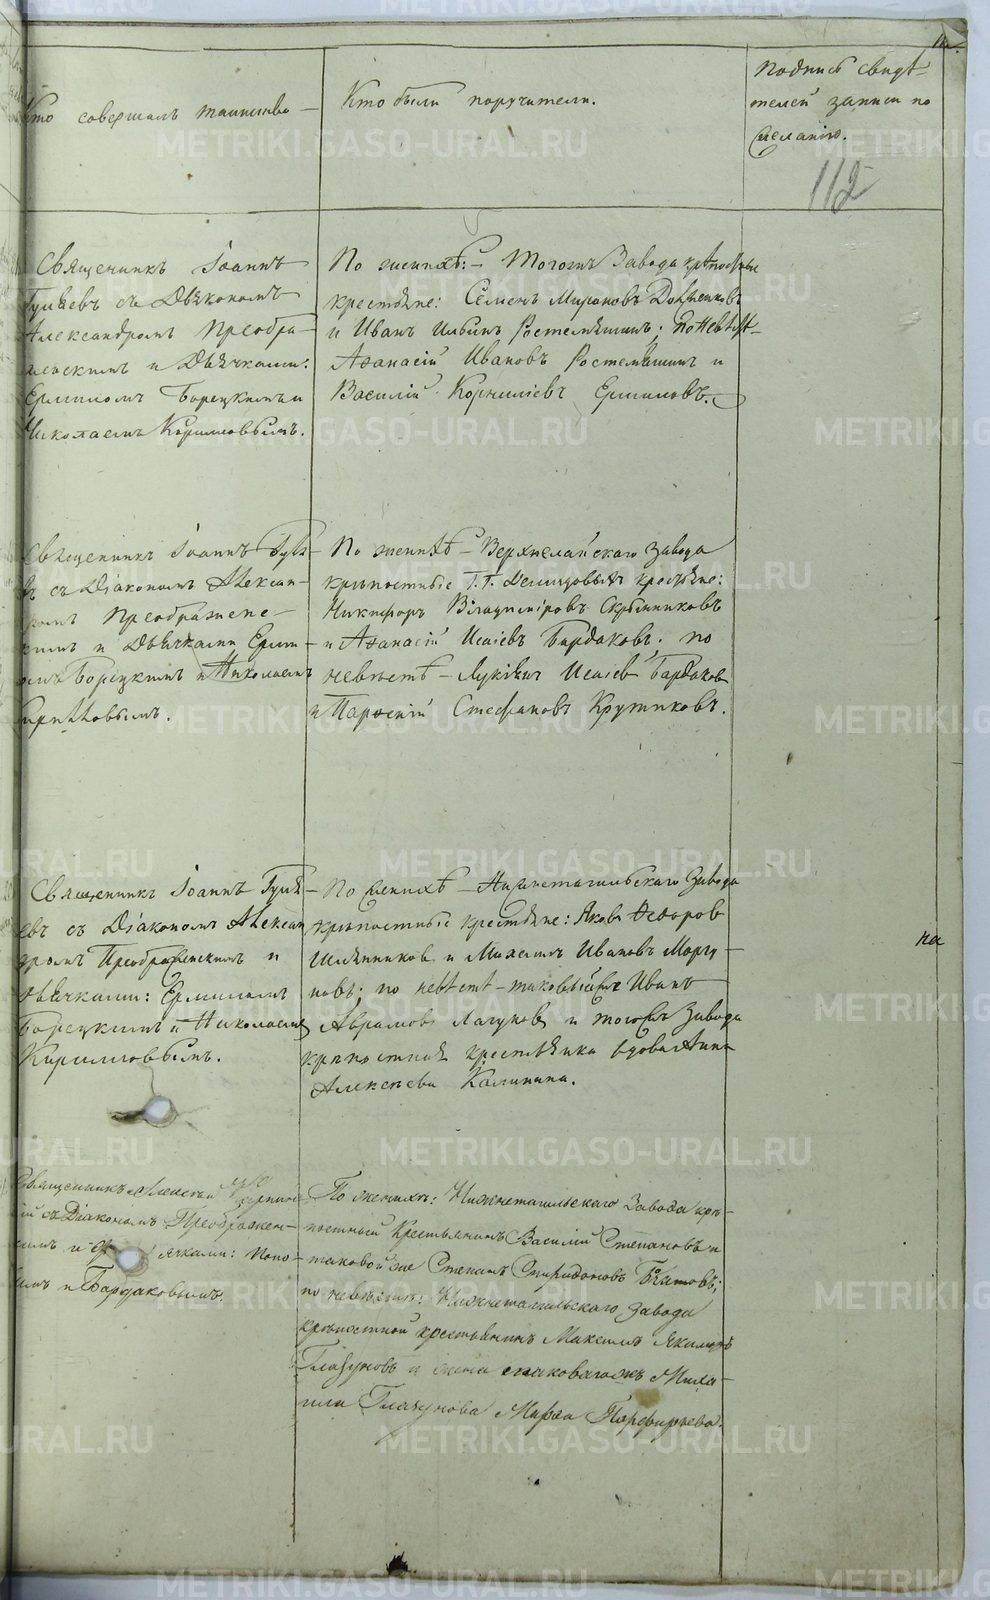 Кто совершалъ таинство
Кто были поручители.
Подпись свидѣ-
телей записи по
желанію.
112
Священникъ Іоаннъ
Гуляевъ съ Діякономъ
Александромъ Преобра-
женскимъ и Дьячками:
Ермиломъ Борецкимъ и
Николаемъ Кориловымъ.
По женихѣ:- Тогожъ Завода крѣпостные
крестьяне: Семенъ Мироновъ
и Иванъ Ильинъ по невѣстѣ-
Аѳанасій Ивановъ и
Василій Корниліевъ Ермиловъ.
Священникъ Іоаннъ Гуля-
въ съ Діакономъ Алексан-
ромъ Преображенс-
кимъ и Дьячками Ерми-
омъ Борецкимъ и Николаемъ
По женихѣ - Верхнелайскаго Завода
крѣпостные Г.Г. Демидовыхъ крестьяне:
Никифоръ Владиміровъ Скрынниковъ
и Аѳанасій Исаіевъ Бардаковъ, по
невѣстѣ - Исаіев Бардаков
и Стефановъ Кружиковъ.
Священникъ Іоаннъ Гуля-
евъ съ Діакономъ Алексан
дромъ Преображенскимъ и
дьячками: Ермиломъ
Борецкимъ и Николаемъ
Кириловымъ.
По женихѣ - Нижнетагильскаго Завода
крѣпостные крестьяне: Яков Ѳедоров
и Ивановъ Моргу-
новъ; по невѣстѣ - таковыйже Иванъ
Аврамовъ Лагунов и тогожъ Завода
крѣпостная крестьянка вдова Анна
Алексѣева Калинина.
на
Священникъ Алексѣй
ій съ Діакономъ Преображен-
кимъ и ячками: Попо-
ымъ и Бардаковымъ.
По женихѣ: Нижнетагильскаго Завода крѣ-
постный Крестьянинъ Василій Степановъ и
таковой же Степанъ Спиридоновъ
по невѣстѣ: Нижнетагильскаго Завода
крѣпостной крестьянинъ Максимъ Якимовъ
Глазуновъ и жена таковагожъ Миха-
ила Глазунова Марѳа Порфирьева.
METRIKI.GASO-URAL.RU